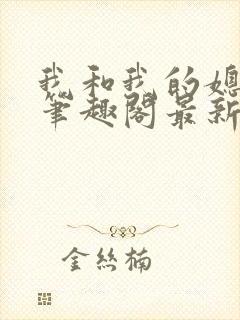 我和我的媳
笔趣阁最新
金丝楠